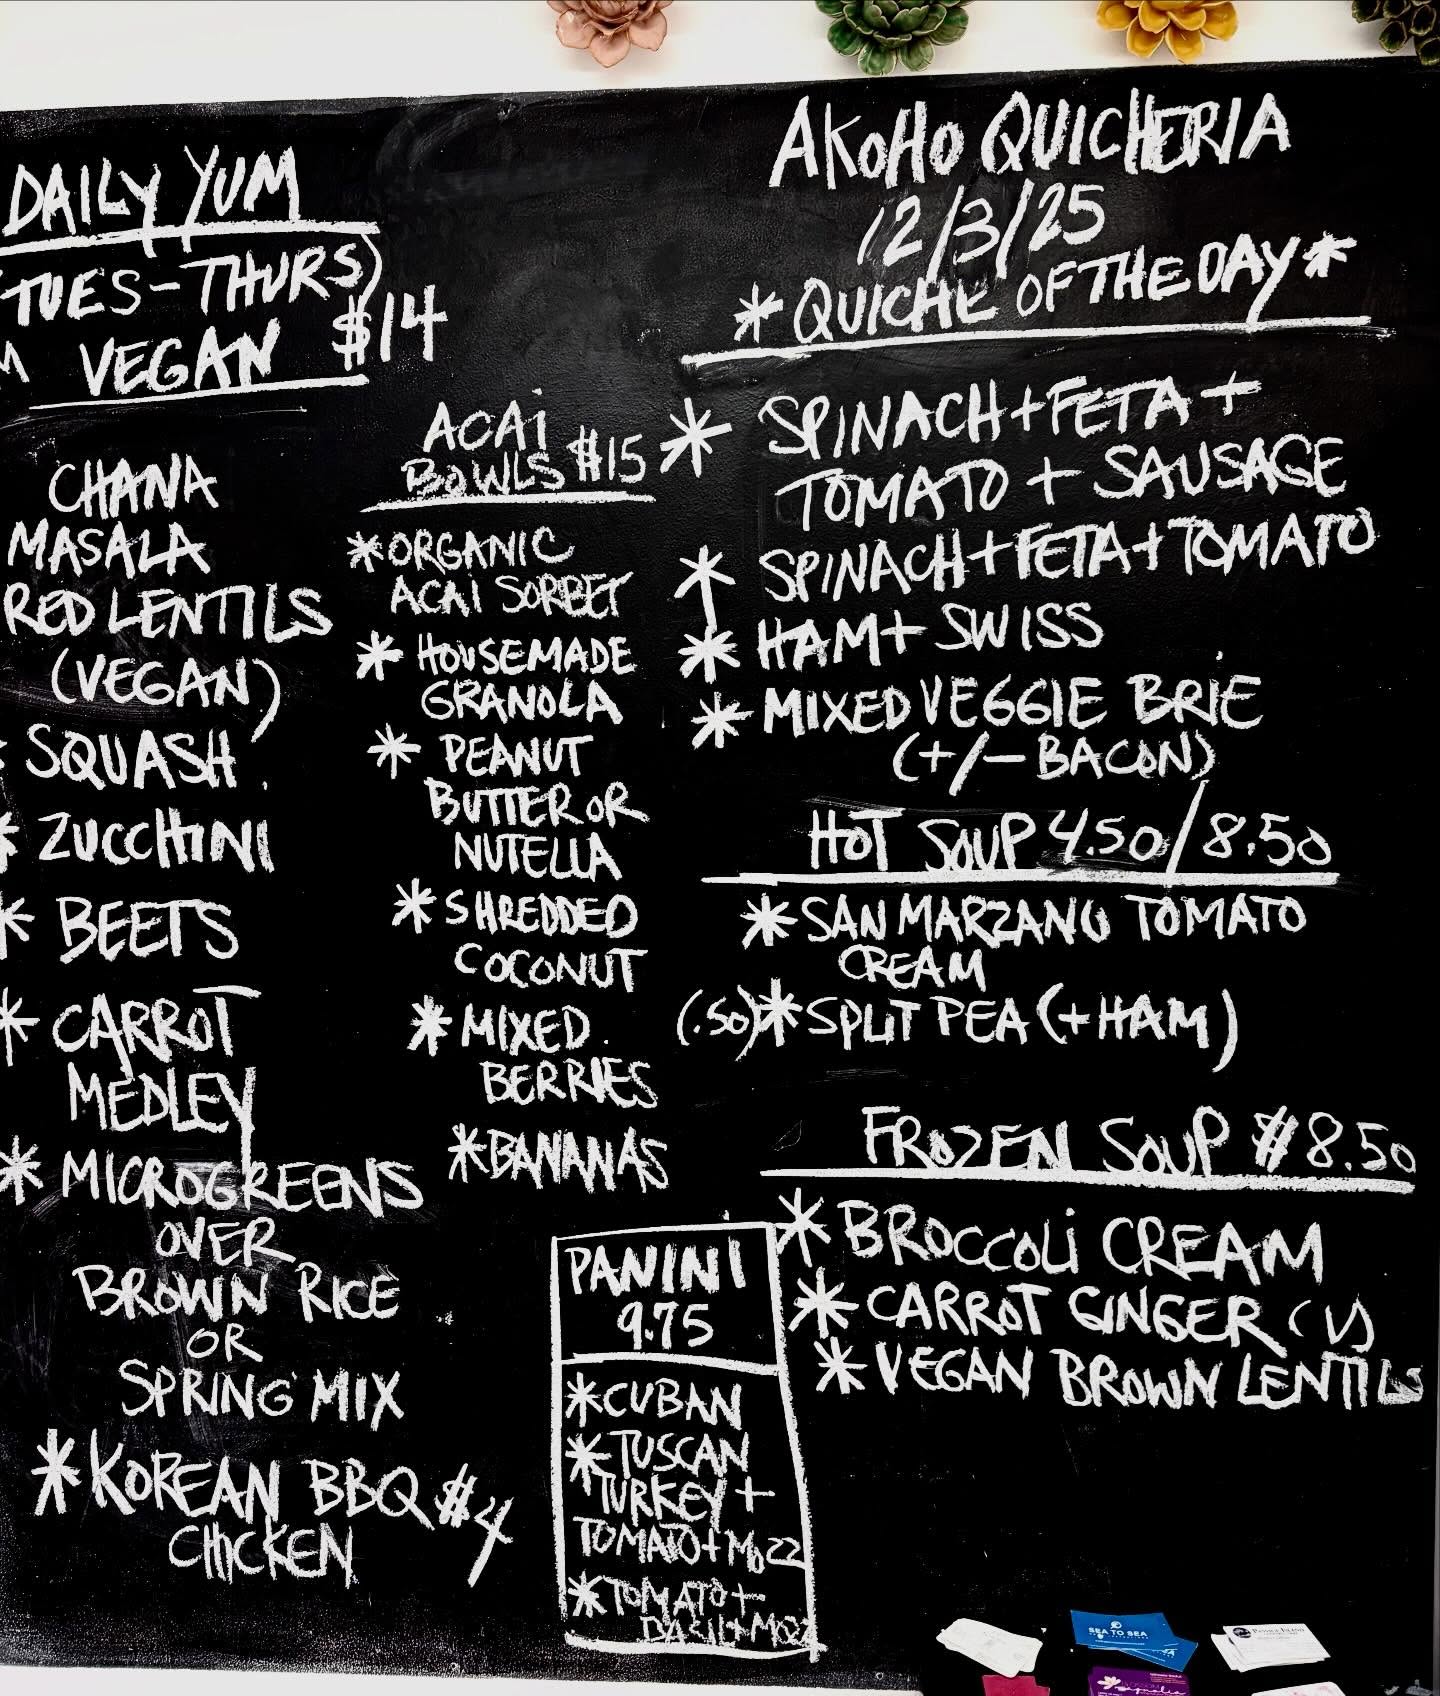 DAILY YUM
(TUES-THURS)
VEGAN $14
CHANA
MASALA
RED LENTILS
(VEGAN)
SQUASH
* ZUCCHINI
* BEETS
* CARROT
MEDLEY
* MICROGREENS
OVER
BROWN RICE
OR
SPRING MIX
* KOREAN BBQ $4
CHICKEN
ACAi
BOWLS $15
* ORGANIC
ACAi SORBET
* HOUSEMADE
GRANOLA
* PEANUT
BUTTER OR
NUTELLA
* SHREDDED
COCONUT
* MIXED
BERRIES
* BANANAS
PANINI
9.75
* CUBAN
* TUSCAN
TURKEY +
TOMATO + MOZZ
* TOMATO +
BASIL + MOZZ
AKOHO QUICHERIA
12/3/25
* QUICHE OF THE DAY *
* SPINACH + FETA +
TOMATO + SAUSAGE
* SPINACH + FETA + TOMATO
* HAM + SWISS
* MIXED VEGGIE BRIE
(+/- BACON)
HOT SOUP 4.50/8.50
* SAN MARZANO TOMATO
CREAM
(.50) * SPLIT PEA (+ HAM)
FROZEN SOUP $8.50
* BROCCOLi CREAM
* CARROT GINGER (V)
* VEGAN BROWN LENTILS
SEA TO SEA
magnolia